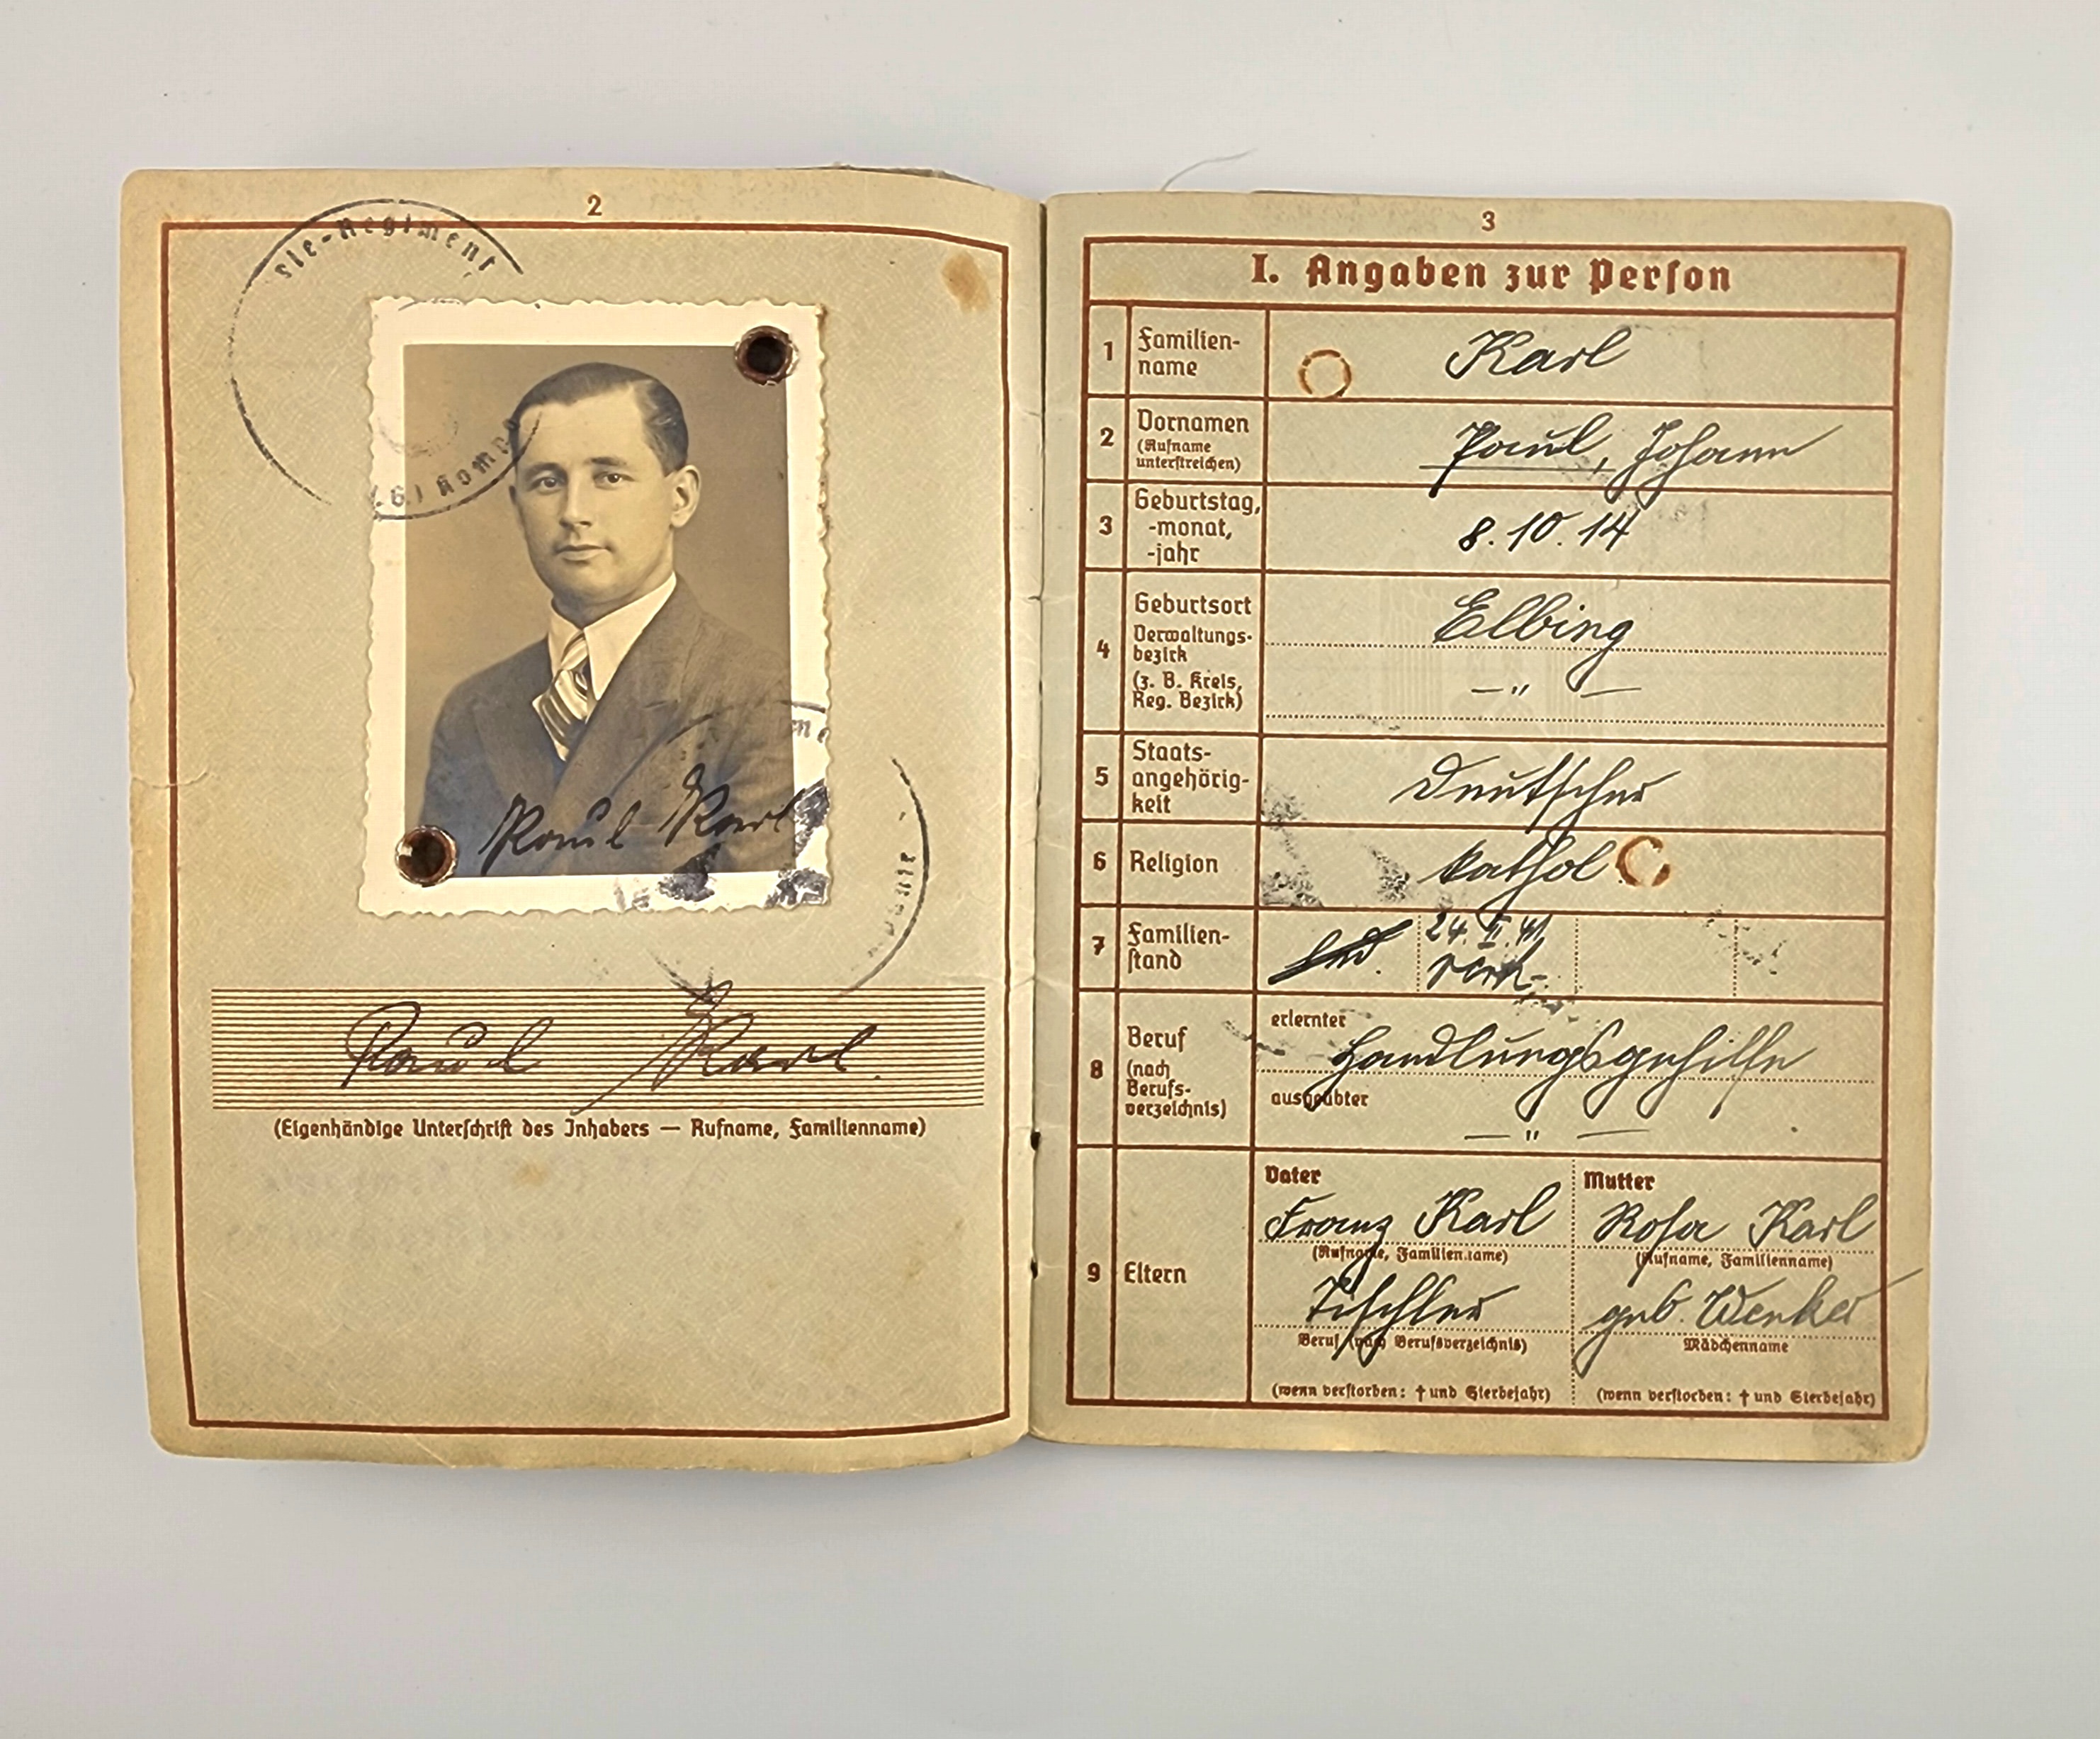 2
Paul Karl
Paul Karl
(Eigenhändige Unterschrift des Inhabers — Rufname, Familienname)
3
I. Angaben zur Person
1 Familien-
name
Karl
2 Vornamen
(Rufname
unterstreichen)
Paul, Johann
3 Geburtstag,
-monat,
-jahr
8.10.14
4 Geburtsort
Verwaltungs-
bezirk
(z. B. Kreis,
Reg. Bezirk)
Elbing
— " —
5 Staats-
angehörig-
keit
Deutscher
6 Religion
kathol
7 Familien-
stand
led.
24. II. 41
verh.
8 Beruf
(nach
Berufs-
verzeichnis)
erlernter
Handlungsgehilfe
ausgeübter
— " —
9 Eltern
Vater
Franz Karl
(Rufname, Familienname)
Tischler
Beruf (nach Berufsverzeichnis)
(wenn verstorben: † und Sterbejahr)
Mutter
Rosa Karl
(Rufname, Familienname)
geb. Wenker
Mädchenname
(wenn verstorben: † und Sterbejahr)